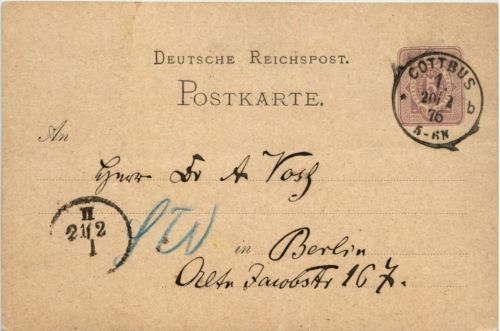 DEUTSCHE REICHSPOST.
POSTKARTE.
COTTBUS
1
20/2
76
5-6N
b
An
Herrn Dr A Voß
II
21/2
I
SW
in Berlin
Alte Jacobstr 167.